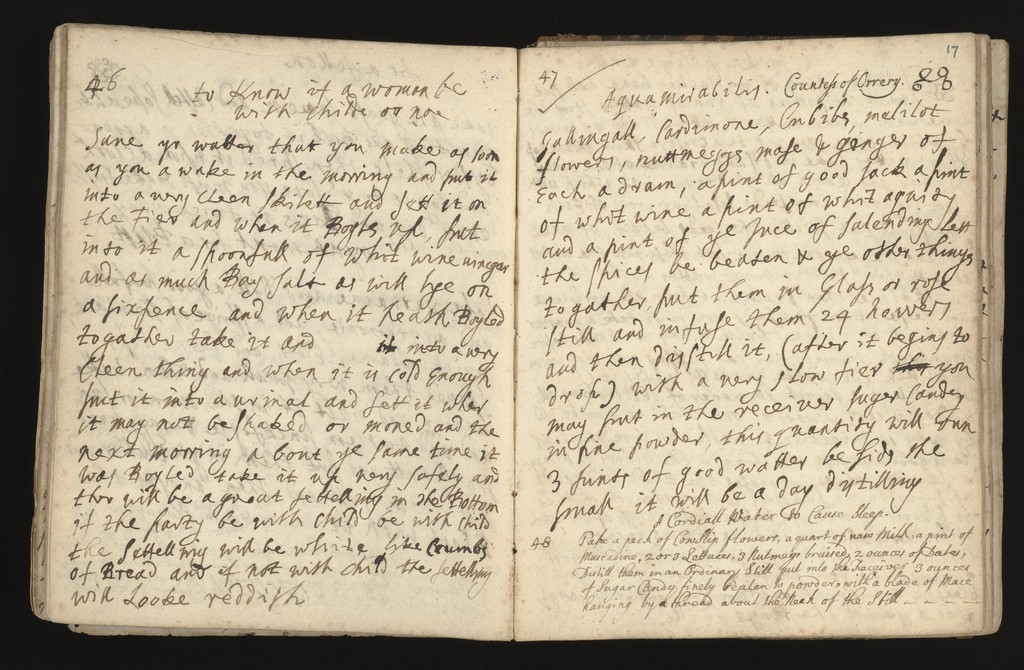 46
to Know if a woman be
with Childe or noe
Save yr watter that you make as soon
as you a wake in the morring and put it
into a very Cleen skilett and sett it on
the Fier and when it Boyles up, put
into it a spoonfull of whit wine vineger
and as much Bay salt as will lye on
a sixpence and when it heath Boyled
togather take it and it into a very
Cleen thing and when it is cold Enough
put it into a urinal and sett it wher
it may not be shaked or moned and the
next morring a bout ye same time it
was Boyled take it up very softly and
ther will be a great settelling in the Bottom
if the party be with Child be with Child
the settelling will be white like Crumbs
of Bread and if not with Child the settelling
will Looke reddish
17
47
Aqua mirabilis. Countess of Orrery.
Gallingall, Cardimone, Cubibs, melilot
flowers, nuttmeggs mase & ginger of
Each a dram, a pint of good sack a pint
of whit wine a pint of whit aquity
and a pint of ye Juce of salendine Lett
the spices be beaten & ye other things
togather put them in Glass or rose
still and infuse them 24 howers
and then disstill it, (after it begins to
drop) with a very slow fier you
may put in the receiver suger Candey
in fine powder, this quantity will run
3 pints of good watter be side the
small it will be a day distilling
A Cordiall Water to Cause Sleep.
48 Take a peck of Cowslip flowers, a quart of new Milk, a pint of
Muscadine, 2 or 3 Lettuces, 3 Nutmegs bruised, 2 ounces of Dates,
Distill them in an Ordinary Still put into the Receiver 3 ounces
of Sugar Candy finely beaten to powder, with a blade of Mace
hanging by a thread about the Neck of the Still